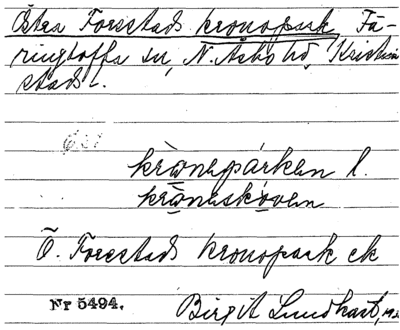 Östra Forestads kronopark, Fä-
ringtofta sn, N. Åsbo hd, Kristian
stads l.
krånepárken l.
kråneskóven
Ö. Forestads kronopark ek
Nr 5494. Birgit Lundkart,